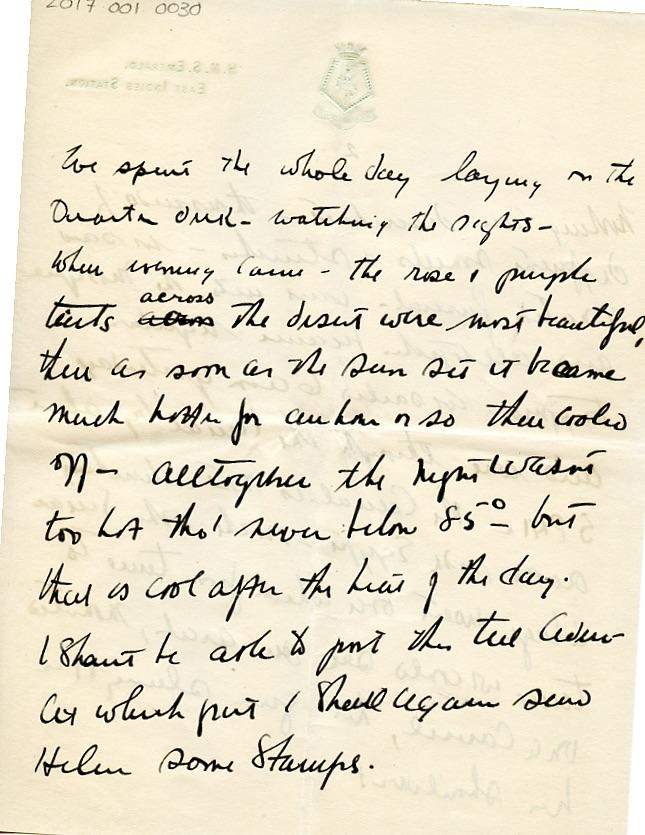 2017 001 0030
H.M.S. EMERALD.
EAST INDIES STATION.
We spent the whole day laying on the
Quarter deck - watching the sights -
When evening came - the rose & purple
tints across across the desert were most beautiful,
then as soon as the sun set it became
much hotter for an hour or so then cooled
off - alltogether the night wasnt
too hot tho' never below 85° - but
that is cool after the heat of the day.
I shant be able to post this till Aden
at which port I shall again send
Helen some Stamps.